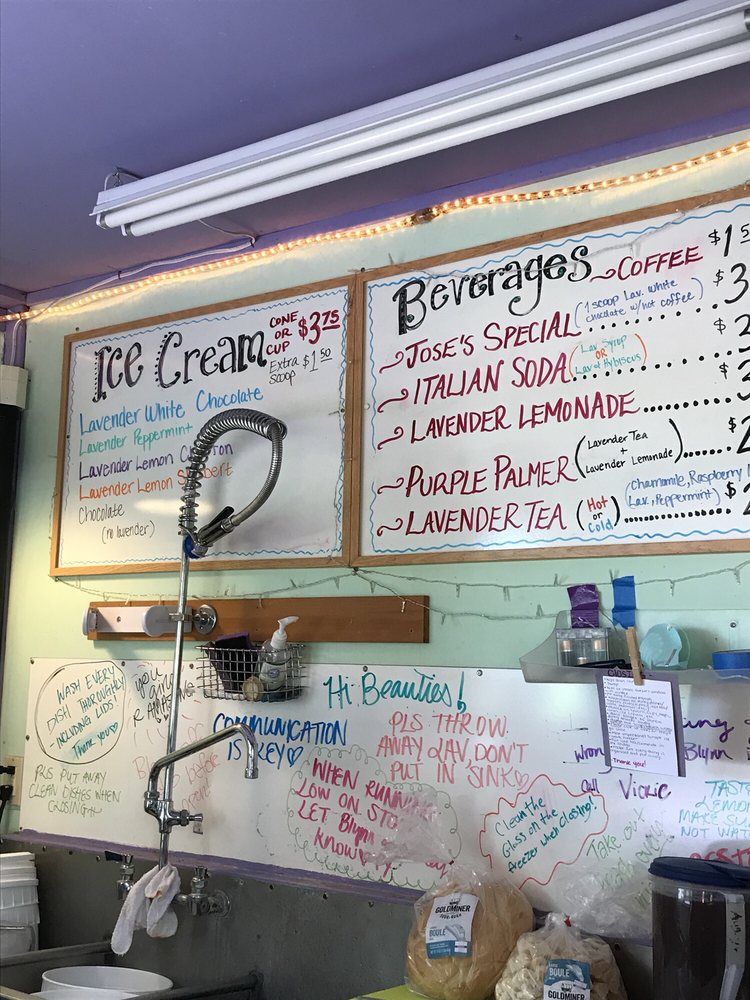 Ice Cream
CONE
OR
CUP
$3.75
Extra
scoop
$1.50
Lavender White Chocolate
Lavender Peppermint
Lavender Lemon
Lavender Lemon
Chocolate
(no lavender)
Beverages
COFFEE
$1
JOSE'S SPECIAL
(1 scoop Lav. white
chocolate w/hot coffee)
$3
ITALIAN SODA
(Lav Syrup
OR
Lav & Hybiscus)
LAVENDER LEMONADE
PURPLE PALMER
(Lavender Tea
+
Lavender Lemonade)
LAVENDER TEA
(Hot
or
Cold)
Chamomile, Raspberry
Lav., Peppermint)
WASH EVERY
DISH THOROUGHLY
- INCLUDING LIDS!
Thank you
PLS PUT AWAY
CLEAN DISHES WHEN
CLOSING
Hi Beauties!
COMMUNICATION
IS KEY
PLS THROW
AWAY LAV, DON'T
PUT IN SINK
WHEN
LOW ON
LET
know
Clean the
Glass on the
freezer when closing!
Take out
Blynn
Call Vickie
Thank you!
TASTE
MAKE
NOT
GOLDMINER
SOURDOUGH
BOULE
BOULE